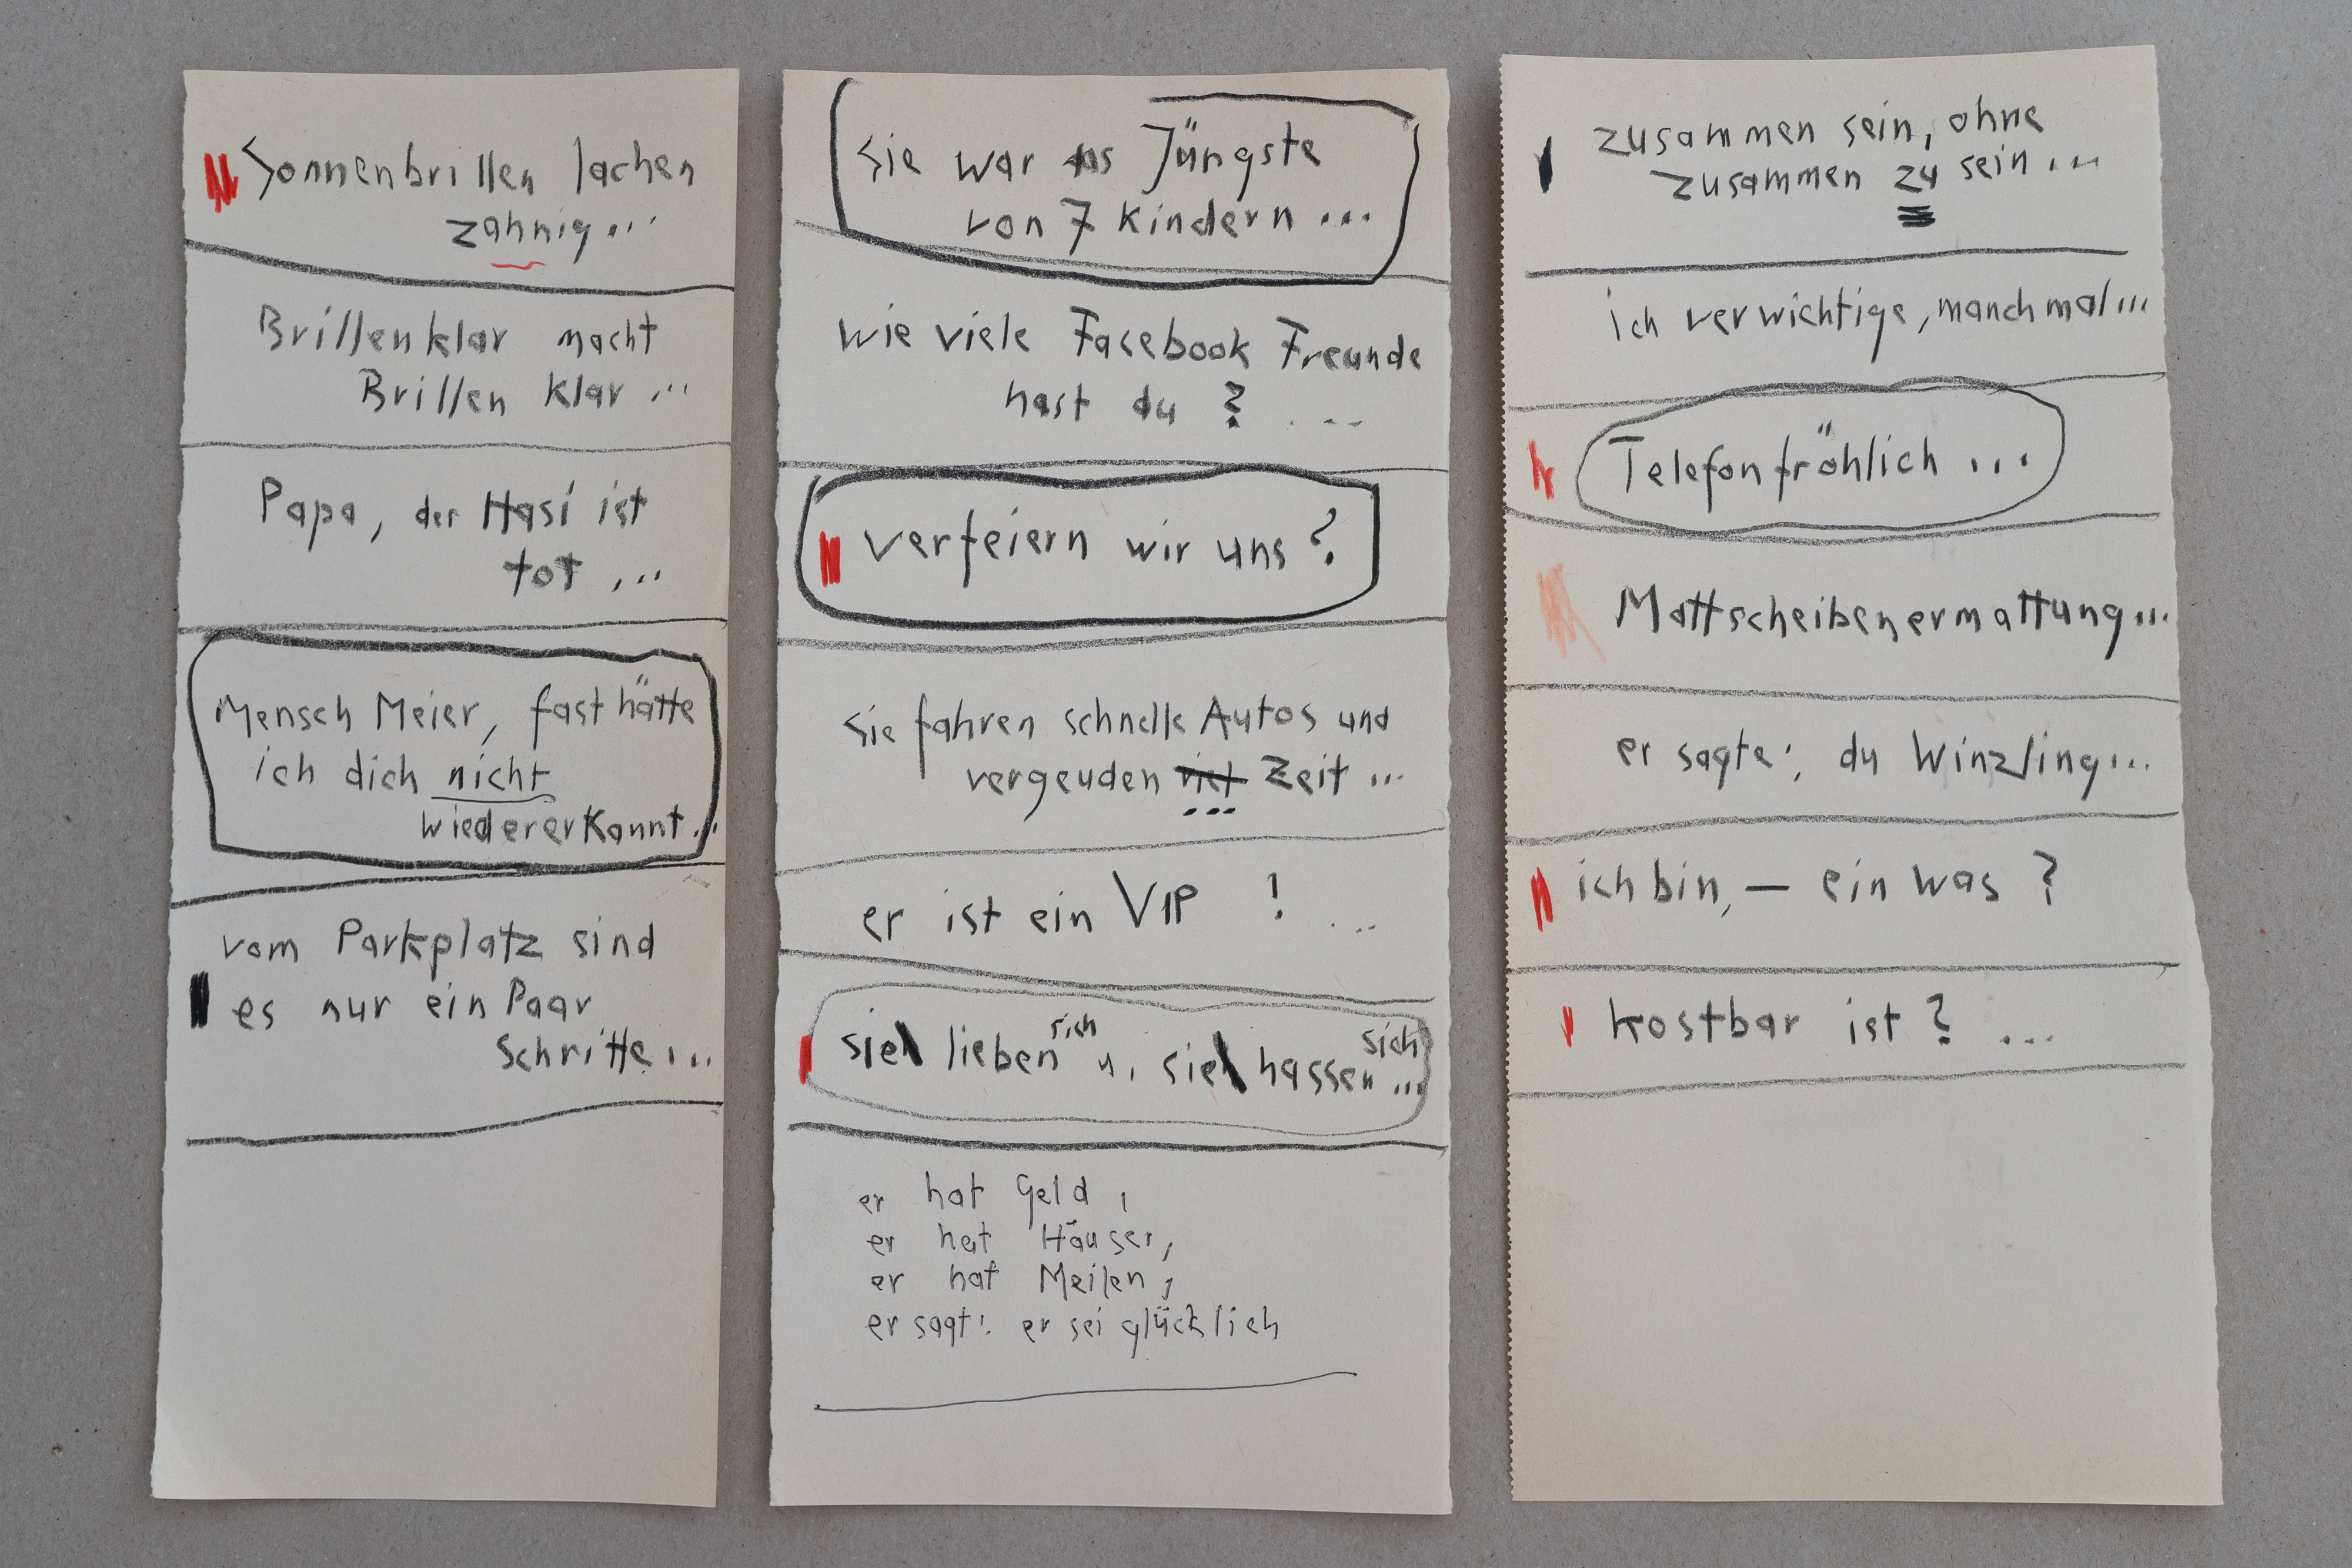 Sonnenbrillen lachen
zahnig...
Brillenklar macht
Brillen klar...
Papa, der Hasi ist
tot ...
Mensch Meier, fast hätte
ich dich nicht
wiedererkannt...
vom Parkplatz sind
es nur ein Paar
Schritte...
sie war Jüngste
von 7 Kindern ...
wie viele Facebook Freunde
hast du ? ...
verfeiern wir uns ?
sie fahren schnelle Autos und
vergeuden viel Zeit ...
er ist ein VIP ! ...
sie lieben sich u. sie hassen sich ...
er hat Geld,
er hat Häuser,
er hat Meilen,
er sagt: er sei glücklich
zusammen sein, ohne
zusammen zu sein ...
ich verwichtige, manchmal...
Telefonfröhlich ...
Mattscheibenermattung...
er sagte: du Winzling...
ich bin, — ein was ?
kostbar ist ? ...